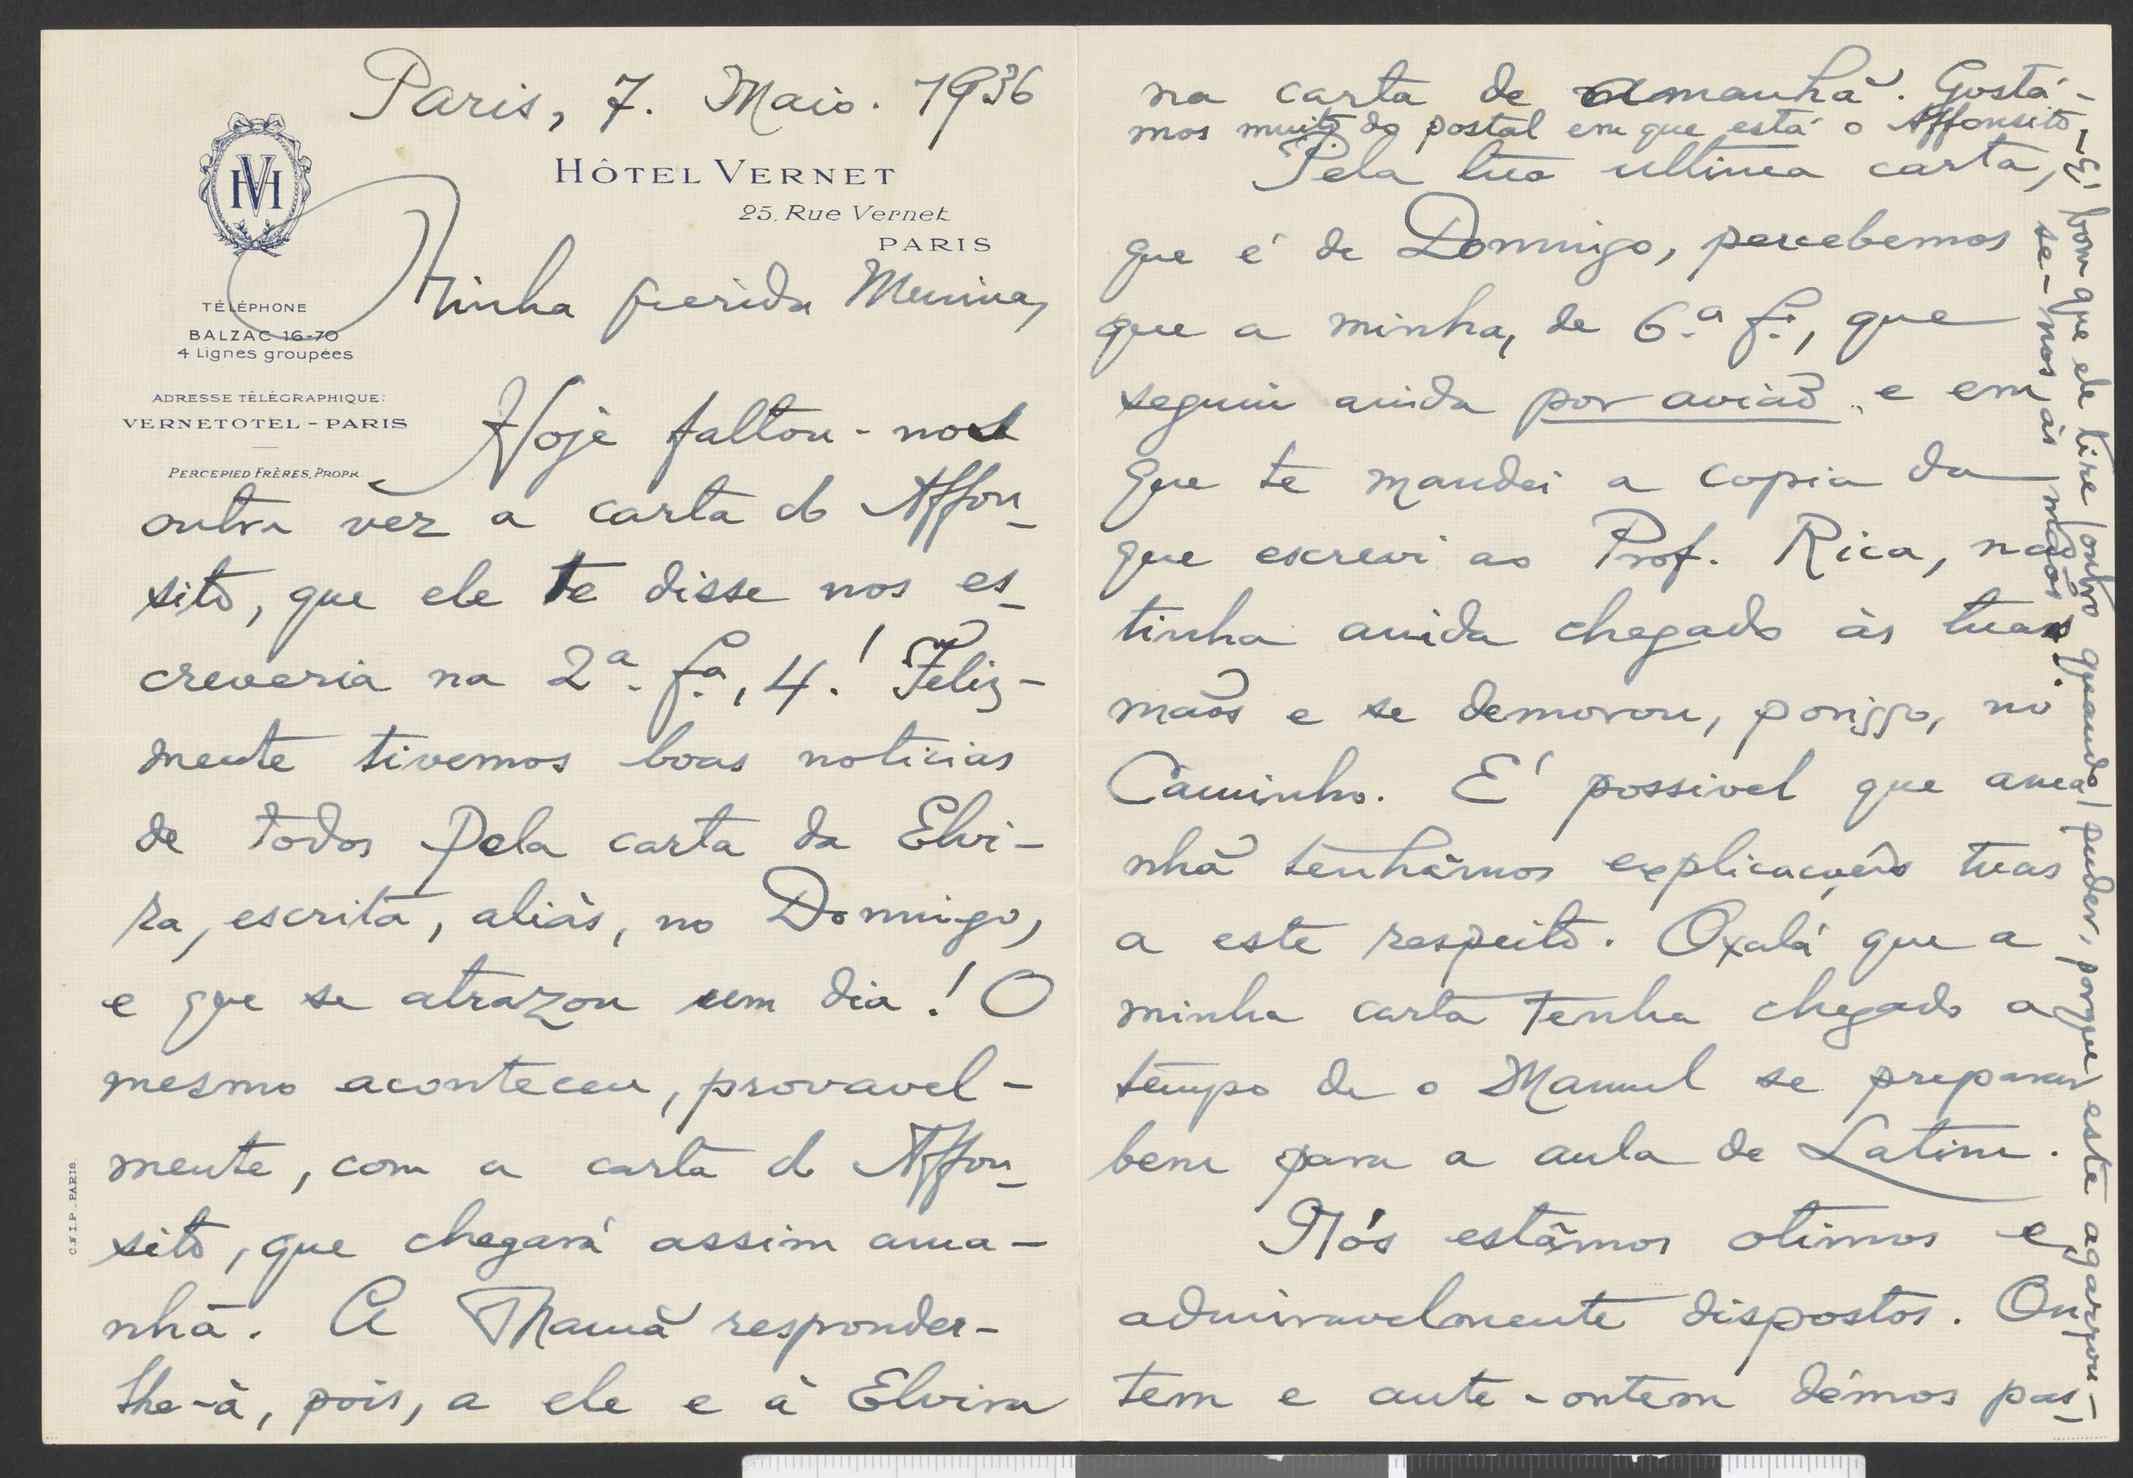 Paris, 7. Maio. 1936
HVM
HÔTEL VERNET
25, Rue Vernet
PARIS
TÉLÉPHONE
BALZAC 16-70
4 Lignes groupées
ADRESSE TÉLÉGRAPHIQUE:
VERNETOTEL - PARIS
PERCEPIED FRÈRES, PROPR.
Minha querida Menina,
Hoje faltou-nos
outra vez a carta do Affon-
sito, que ele te disse nos es-
creveria na 2ª. fª., 4.! Feliz-
mente tivemos boas noticias
de todos pela carta da Elvi-
ra, escrita, aliàs, no Domingo,
e que se atrazou um dia! O
mesmo aconteceu, provavel-
mente, com a carta do Affon-
sito, que chegará assim ama-
nhã. A Mamã responder-
lhe-à, pois, a ele e à Elvira
C.N.I.P. PARIS
na carta de amanhã. Gostá-
mos muito do postal em que está o Affonsito,
Pela tua ultima carta,
que é de Domingo, percebemos
que a minha, de 6.ª fª., que
seguiu ainda por avião, e em
que te mandei a copia da
que escrevi ao Prof. Rica, não
tinha ainda chegado às tuas
mãos e se demorou, porisso, no
Caminho. E' possivel que ama-
nhã tenhâmos explicações tuas
a este respeito. Oxalá que a
minha carta tenha chegado a
tempo de o Manuel se preparar
bem para a aula de Latim.
Nós estâmos otimos e
admiravelmente dispostos. On-
tem e ante-ontem démos pas-
- E' bom que ele tire outro quando puder, porque este agarrou-
se-nos às mãos.